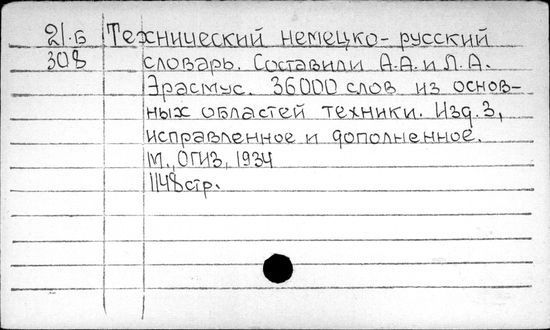 21.Б Технический немецко-русский
308 словарь. Составили А.А. и Л.А.
Эрасмус. 36000 слов из основ-
ных областей техники. Изд. 3,
исправленное и дополненное.
М., ОГИЗ, 1934
1148 стр.